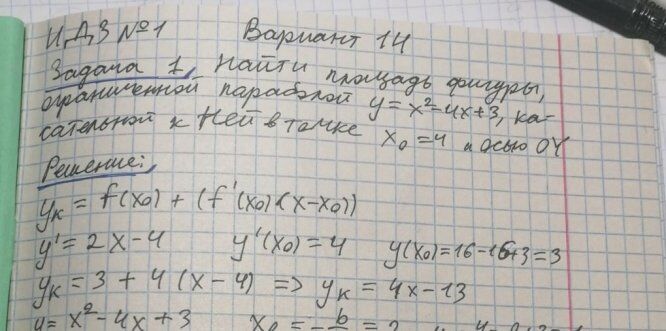 ИДЗ №1 Вариант 14
Задача 1. Найти площадь фигуры,
ограниченной параболой y = x² - 4x + 3, ка-
сательной к ней в точке x₀ = 4 и осью OY
Решение:
yₖ = f(x₀) + (f'(x₀)·(x - x₀))
y' = 2x - 4 y'(x₀) = 4 y(x₀) = 16 - 16 + 3 = 3
yₖ = 3 + 4 (x - 4) => yₖ = 4x - 13
y = x² - 4x + 3